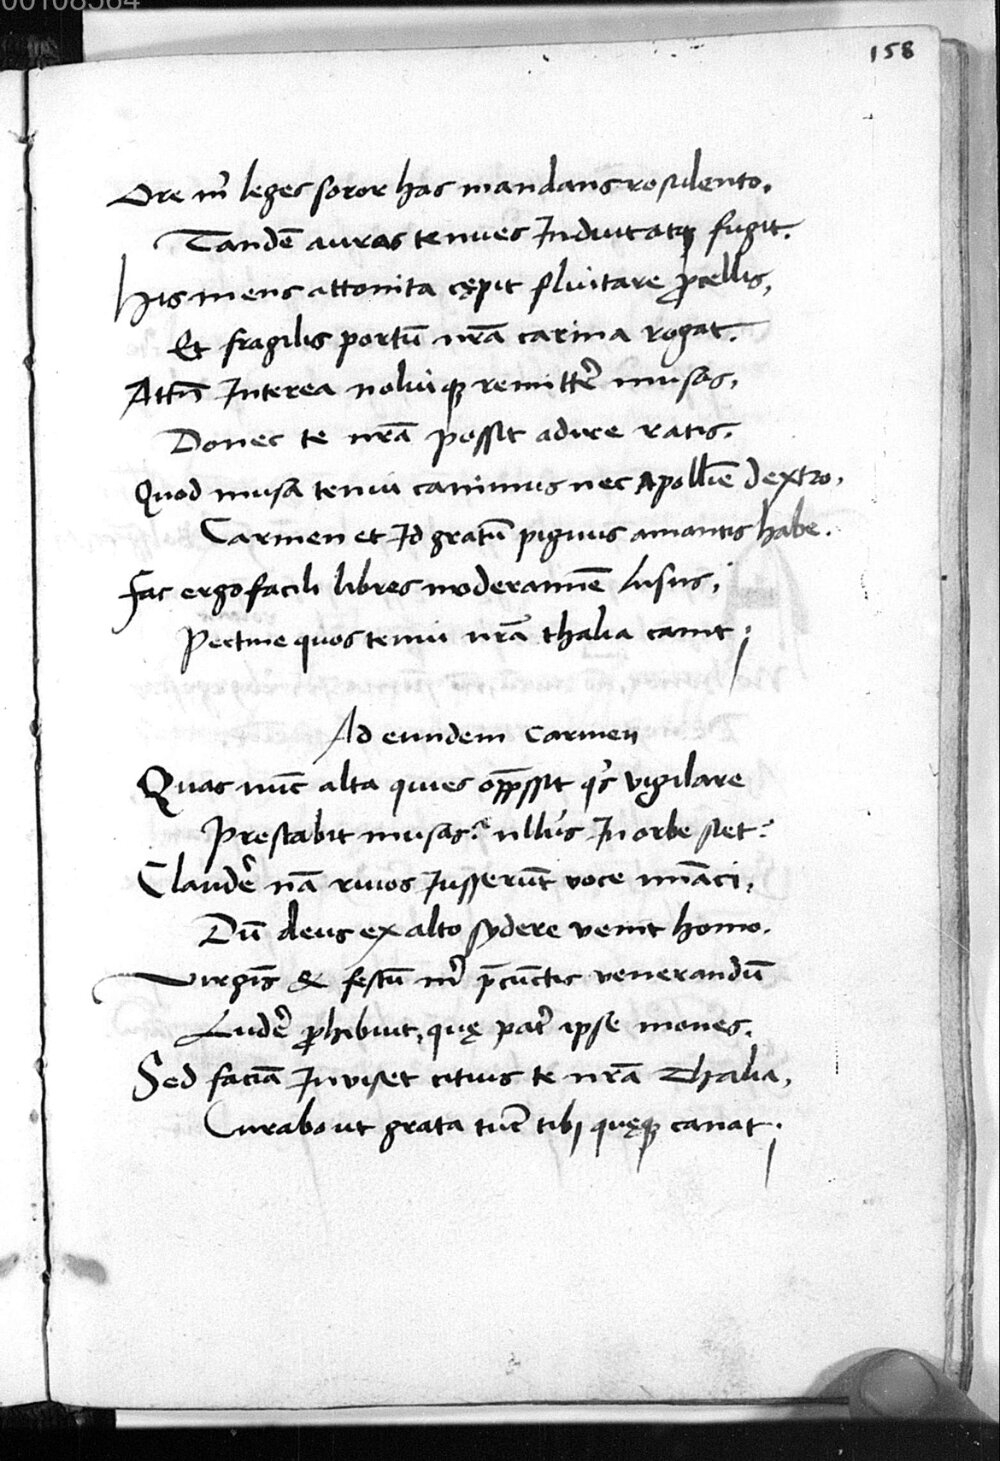 00108564
158
Ore m̄ leges soror has mandans rosulento.
Tandē auras tenues Induit atq fugit.
His mens attonita cępit fluitare p̄cellis,
Et fragilis portū nr̄a carina rogat.
Attn̄ Interea nolui remitter̄ musas,
Donec te nr̄a possit adire ratis.
Quod musa tenui canimus nec Apoll̄ie dextro,
Carmen et Id gratū pignus amantis habe.
Fac ergo facili libres moderamīe lusus,
Pectine quos tenui nr̄a thalia canit;
Ad eundem Carmen
Quas nūc alta quies opp̄ssit q̄s vigilare
Prestabit musas? ullus In orbe siet?
Claudēr nā rivos Jusserūt voce
Dū deus ex alto sydere venit homo.
Virgīs & festū m̄ p̄ cūctis venerandū
Ludēr p̄hibuit, quę pat̄r ipse mones.
Sed faciā Inviset citius te nr̄a Thalia,
Curabo ut grata tūc tibj quęq canat;